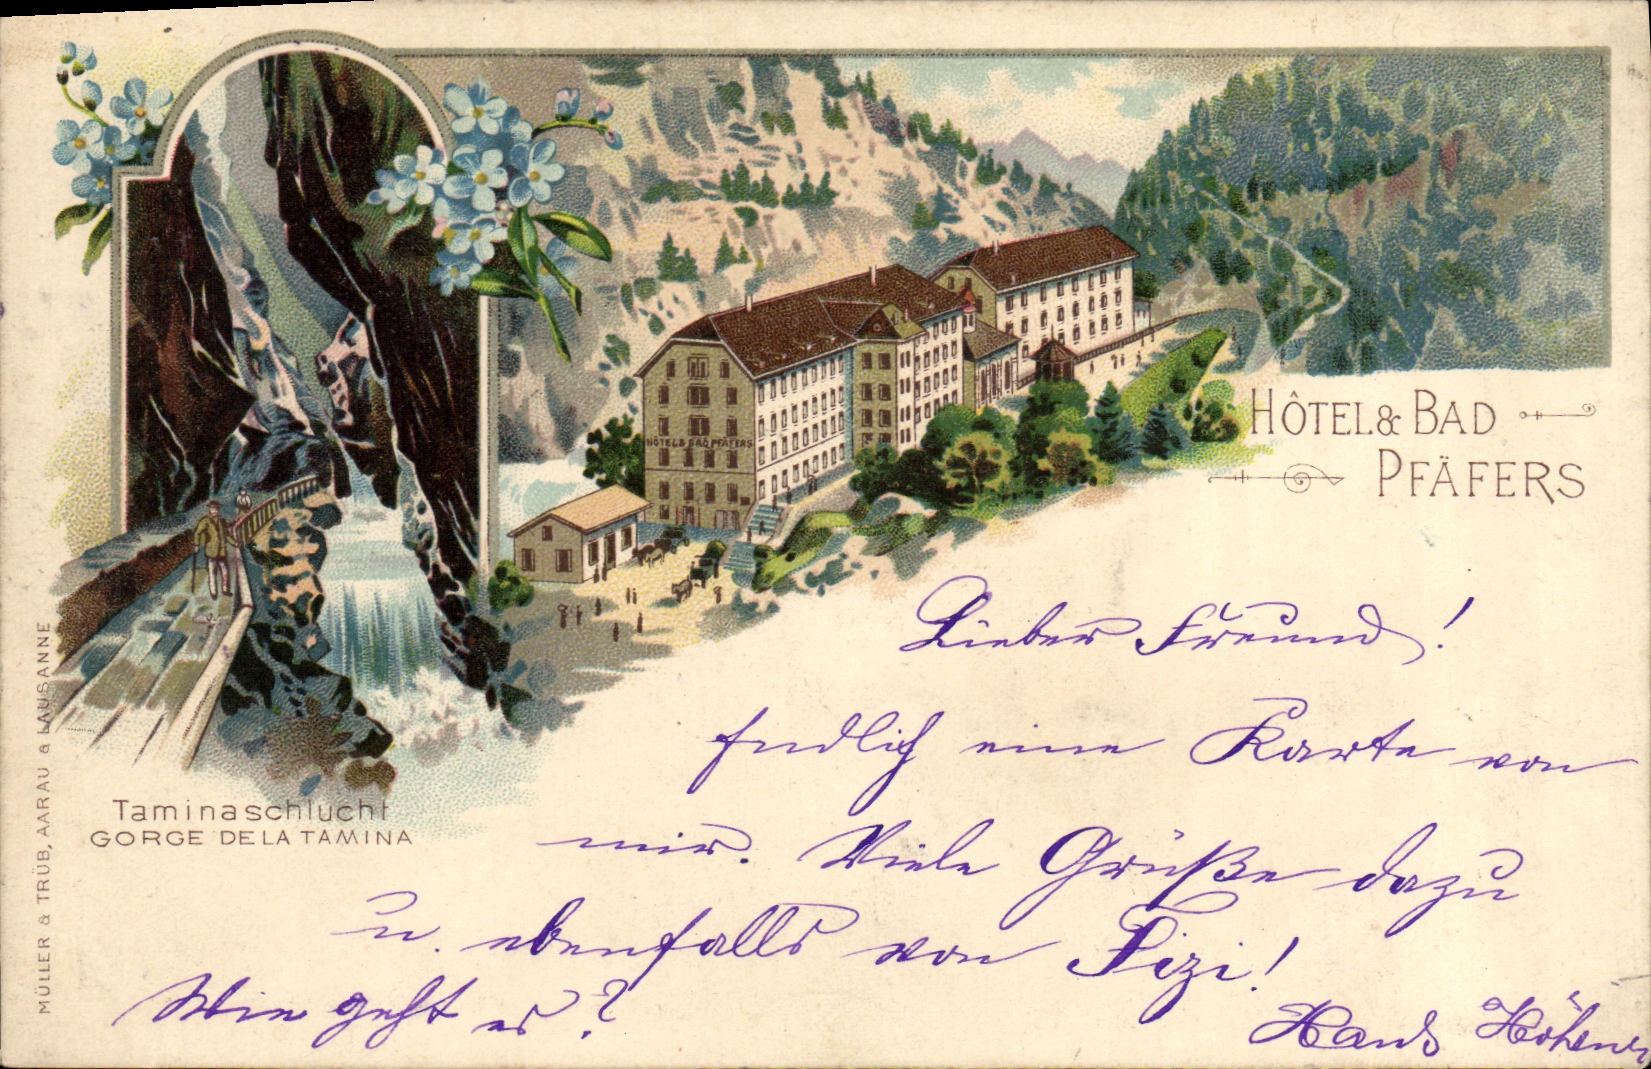 HÔTEL & BAD
PFÄFERS
HÔTEL & BAD PFÄFERS
Taminaschlucht
GORGE DE LA TAMINA
MÜLLER & TRÜB, AARAU & LAUSANNE
Lieber Freund!
Endlich eine Karte von
mir. Viele Grüße dazu
u. ebenfalls von
Wie geht es?
Hans